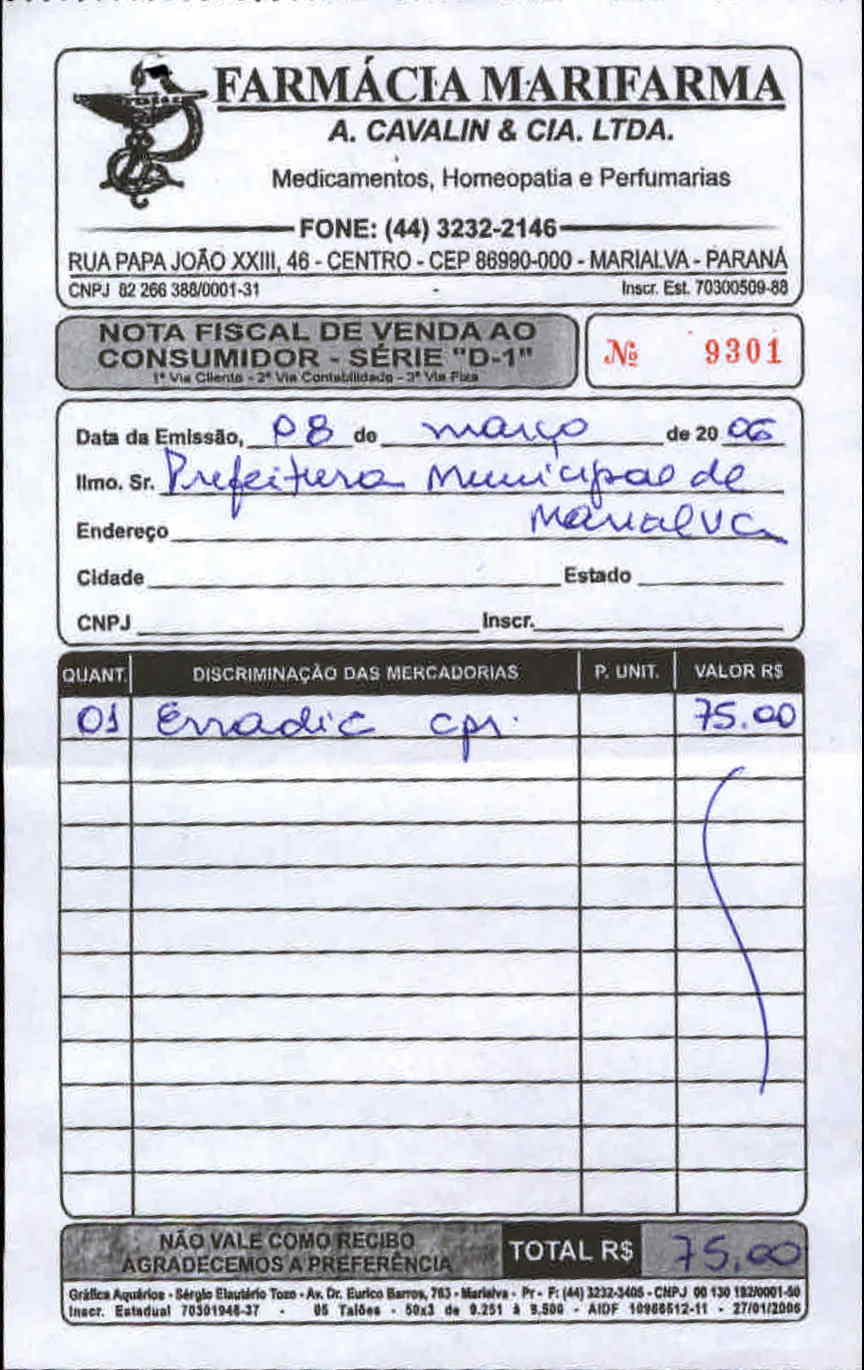 FARMÁCIA MARIFARMA
A. CAVALIN & CIA. LTDA.
Medicamentos, Homeopatia e Perfumarias
FONE: (44) 3232-2146
RUA PAPA JOÃO XXIII, 46 - CENTRO - CEP 86990-000 - MARIALVA - PARANÁ
CNPJ 82 266 388/0001-31 Inscr. Est. 70300509-88
NOTA FISCAL DE VENDA AO
CONSUMIDOR - SÉRIE "D-1"
1ª Via Cliente - 2ª Via Contabilidade - 3ª Via Fixa
Nº 9301
Data da Emissão, 08 de março de 20 06
Ilmo. Sr. Prefeitura Municipal de
Marialva
Endereço
Cidade Estado
CNPJ Inscr.
QUANT. DISCRIMINAÇÃO DAS MERCADORIAS P. UNIT. VALOR R$
01 Erradic cpr. 75.00
NÃO VALE COMO RECIBO
AGRADECEMOS A PREFERÊNCIA
TOTAL R$ 75,00
Gráfica Aquários - Sérgio Elautério Tozo - Av. Dr. Eurico Barros, 763 - Marialva - Pr - F: (44) 3232-3405 - CNPJ 00 130 192/0001-50
Inscr. Estadual 70301946-37 - 05 Talões - 50x3 de 9.251 à 9.500 - AIDF 10966512-11 - 27/01/2006